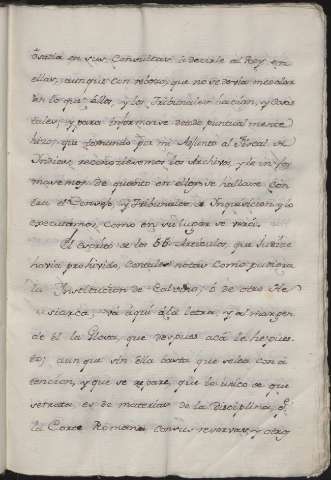 osadia en sus Consultas à decirle al Rey en
ellas, aunque con reboso, que no se devia mezclar
en lo que ellos, y los Tribunales hacian, y Ovra
tales, y para informarse de todo puntualmente
hizo, que tomando por mi Asiento al Fiscal de
Indias, reconociesemos los Archivos, y le infor
masemos de quanto en ellos se hallase con
tra el Consejo, y Tribunales de Inquisicion, y lo
executamos, como en su lugar se verá.
El escrito de los 55 Articulos, que Judice
havia prohivido, con tales notas como pusiera
la Institucion de Calvino, ó de otro He
siarca, và aqui à la letra, y al margen
de él la Glosa, que despues acá le he pues
to; aunque sin ella basta que se lea con a
tencion, y que se repare, que lo unico de que
se trata, es de materias de la Disciplina, q.e
la Corte Romana con sus reservas, y otros